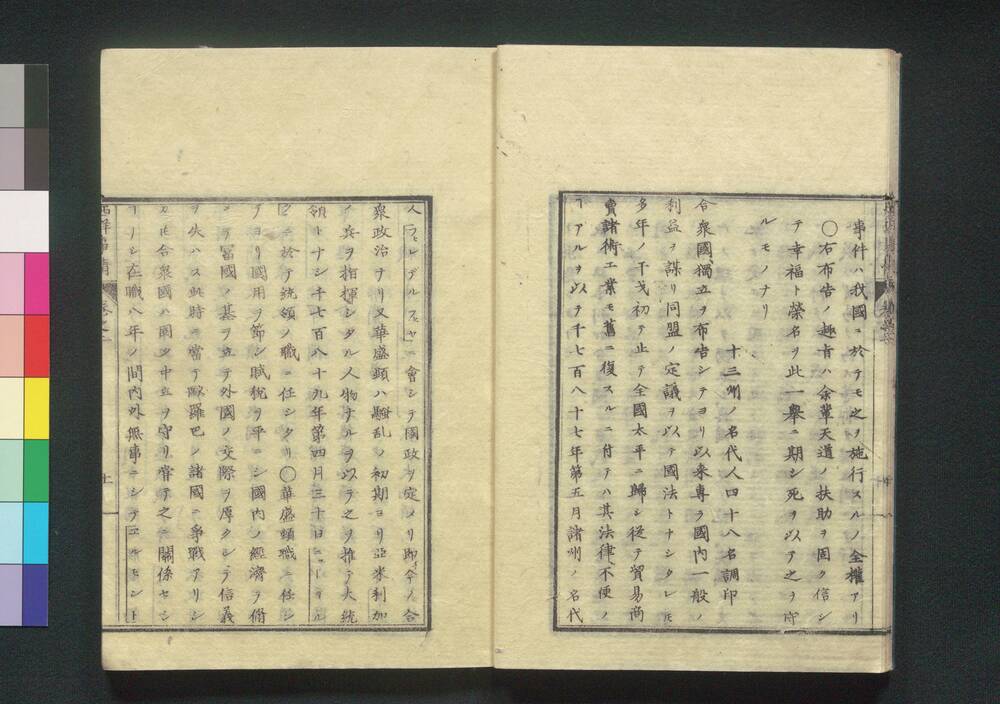 事件ハ我國ニ於テモ之ヲ施行スルノ全權アリ
〇右布告ノ趣旨ハ余輩天道ノ扶助ヲ固ク信シ
テ幸福ト榮名ヲ此一擧ニ期シ死ヲ以テ之ヲ守
ルモノナリ
十三州ノ名代人四十八名調印
合衆國獨立ヲ布告シテヨリ以来專ラ國内一般ノ
利益ヲ謀リ同盟ノ定議ヲ以テ國法トナシタレ𪜈
多年ノ干戈初テ止テ全國太平ニ歸シ従テ貿易商
賣諸術工業モ舊ニ復スルニ付テハ其法律不便ノ
ヿアルヲ以テ千七百八十七年第五月諸州ノ名代
人フェレデルフヒヤニ會シテ國政ヲ定メリ即今ノ合
衆政治ナリ又華盛頓ハ騒乱ノ初期ヨリ亞米利加
ノ兵ヲ指揮シタル人物ナルヲ以テ之ヲ推テ大統
領トナシ千七百八十九年第四月三十日ニューヨル
クニ於テ統領ノ職ニ任シタリ〇華盛頓職ニ任シ
テヨリ國用ヲ節シ賦税ヲ平ニシ國内ノ經濟ヲ脩
メテ冨國ノ基ヲ立テ外國ノ交際ヲ厚クシテ信義
ヲ失ハス此時ニ當テ歐羅巴ノ諸國ニ爭戰アリシ
カ𪜈合衆國ハ固ク中立ヲ守リ嘗テ之ニ關係セシ
ヿナシ在職八年ノ間内外無事ニシテ